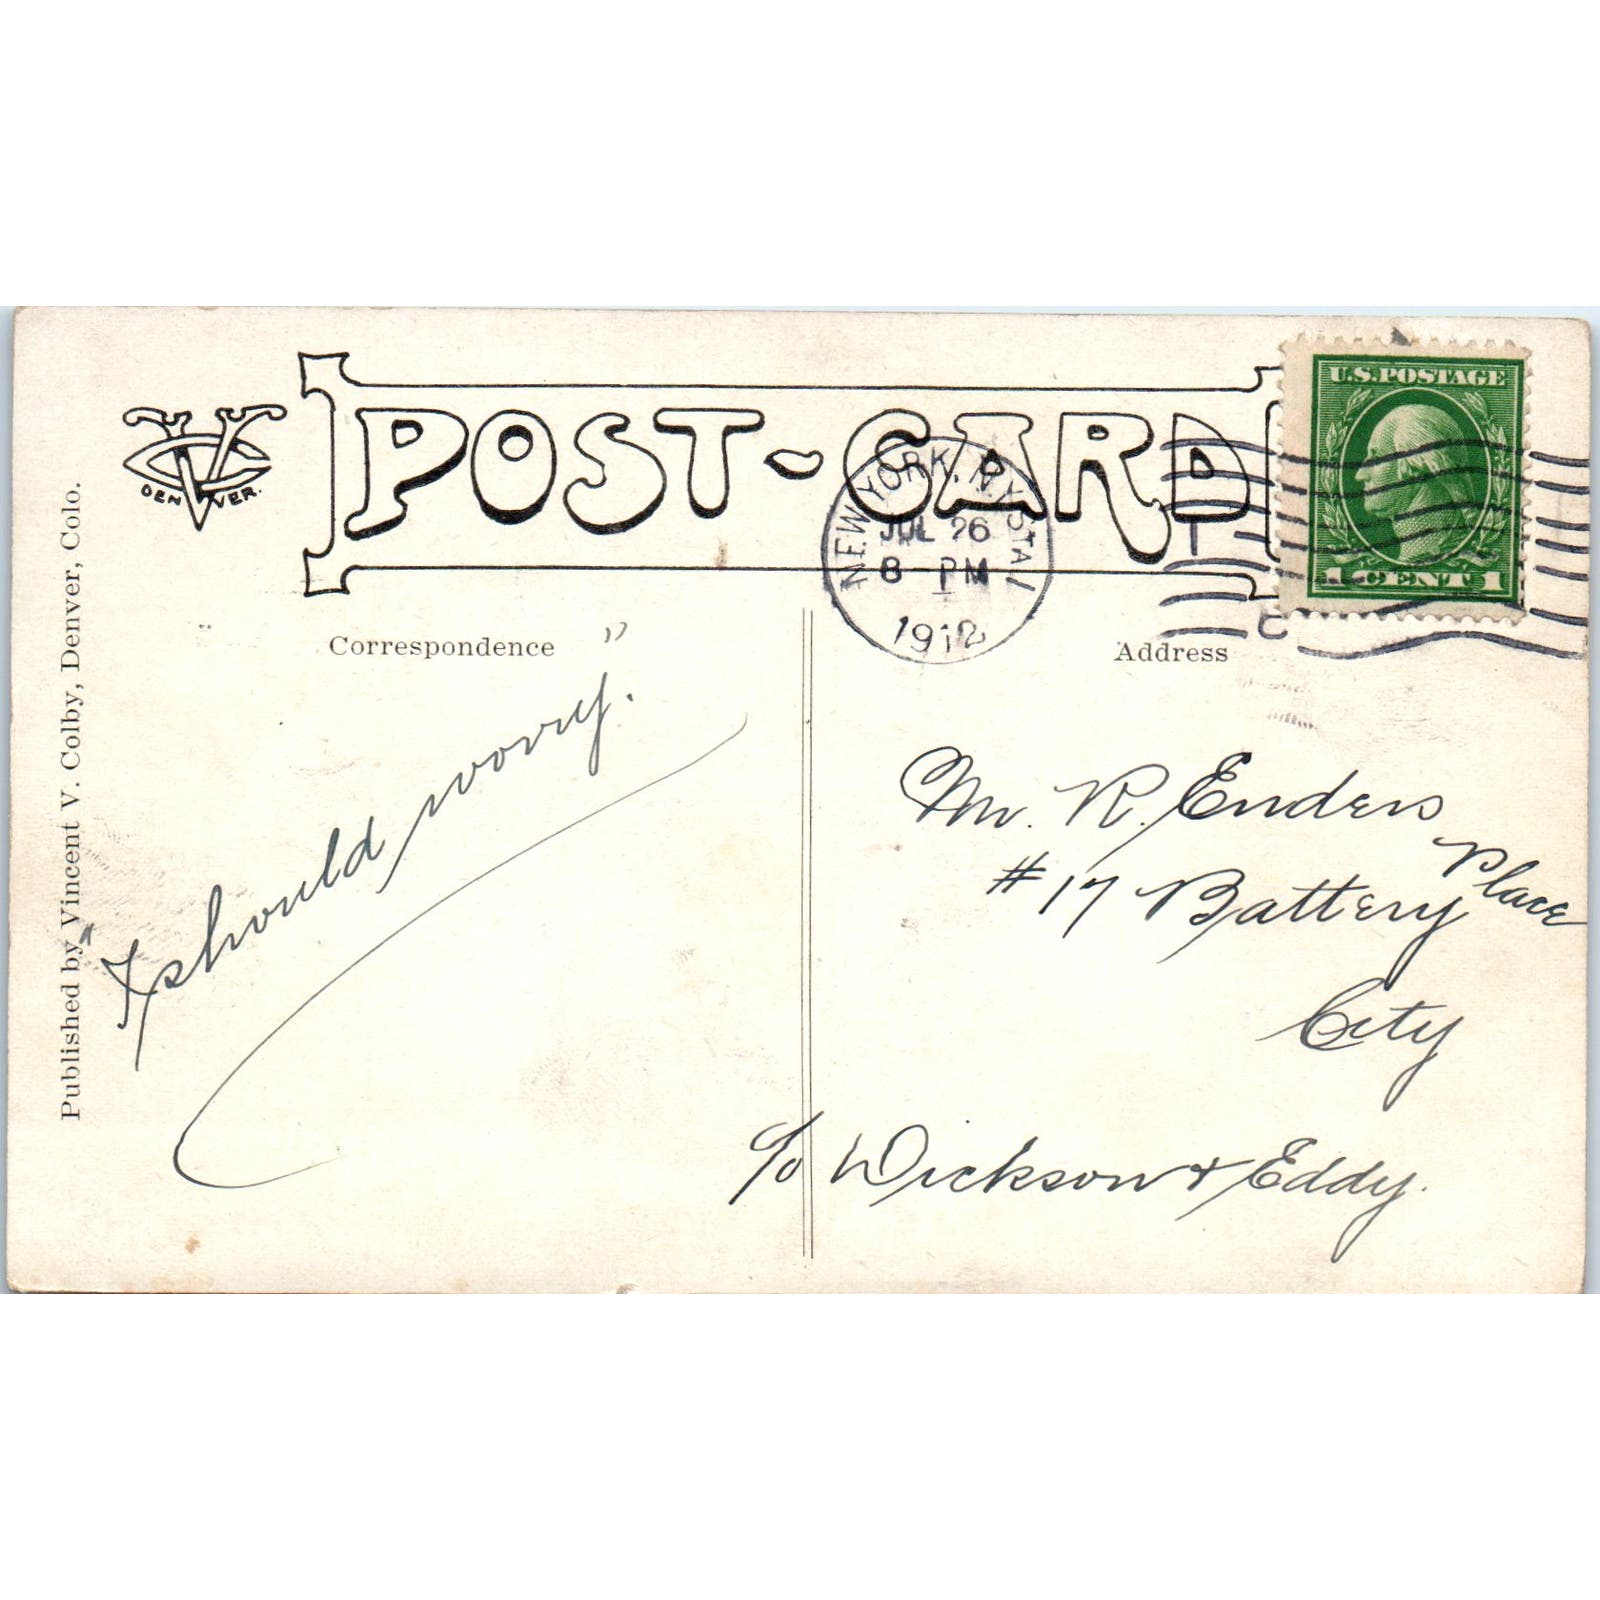 POST-CARD
VC
DENVER.
U.S. POSTAGE
1 CENT 1
NEW YORK, N.Y. STA
JUL 26
8-PM
1912
Correspondence
Address
Published by Vincent V. Colby, Denver, Colo.
"I should worry."
Mr. R. Enders
#17 Battery Place
City
c/o Dickson & Eddy.